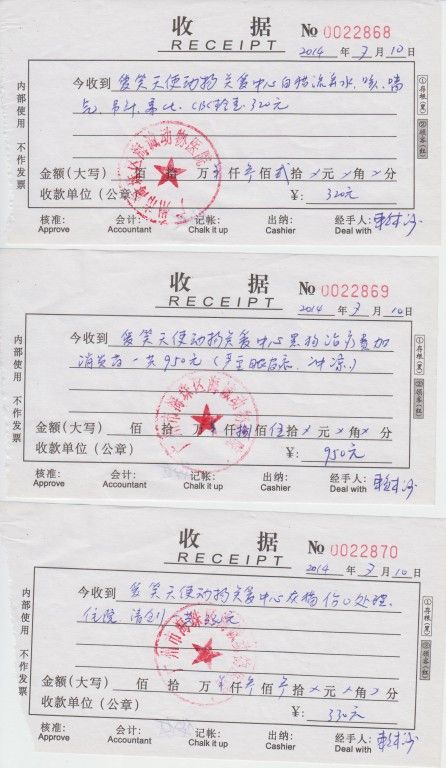 收 据
RECEIPT
No 0022868
2014 年 3 月 10 日
今收到 爱笑天使动物关爱中心白猫流鼻水、咳、喘
气、CBC检查 320元
金额(大写) 佰 拾 万 仟 叁 佰 贰 拾 × 元 × 角 × 分
收款单位(公章) ¥: 320元
核准: 会计: 记帐: 出纳: 经手人:
Approve Accountant Chalk it up Cashier Deal with
内部使用 不作发票
①存根(黑) ②领客(红)
收 据
RECEIPT
No 0022869
2014 年 3 月 10 日
今收到 爱笑天使动物关爱中心黑狗治疗费加
消炎药一共950元
金额(大写) 佰 拾 万 仟 佰 伍 拾 × 元 × 角 × 分
收款单位(公章) ¥: 950元
核准: 会计: 记帐: 出纳: 经手人:
Approve Accountant Chalk it up Cashier Deal with
内部使用 不作发票
①存根(黑) ②领客(红)
收 据
RECEIPT
No 0022870
2014 年 3 月 10 日
今收到 爱笑天使动物关爱中心灰猫伤口处理、
住院 清创 330元
金额(大写) 佰 拾 万 仟 叁 佰 叁 拾 × 元 × 角 × 分
收款单位(公章) ¥: 330元
核准: 会计: 记帐: 出纳: 经手人:
Approve Accountant Chalk it up Cashier Deal with
内部使用 不作发票
①存根(黑) ②领客(红)